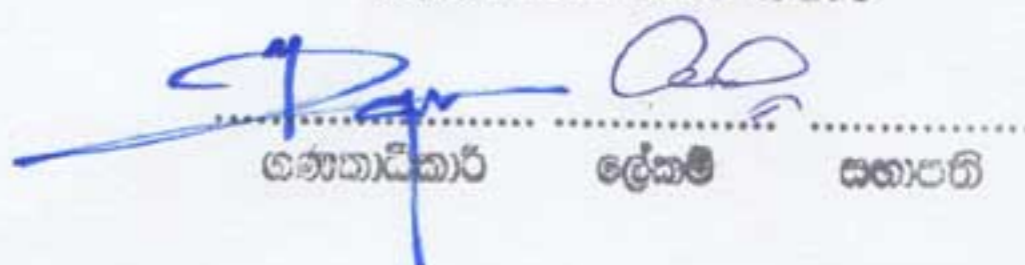 ගණකාධිකාරී ලේකම් සභාපති